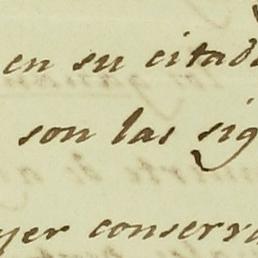 en su citad
son las sig
yer conserva